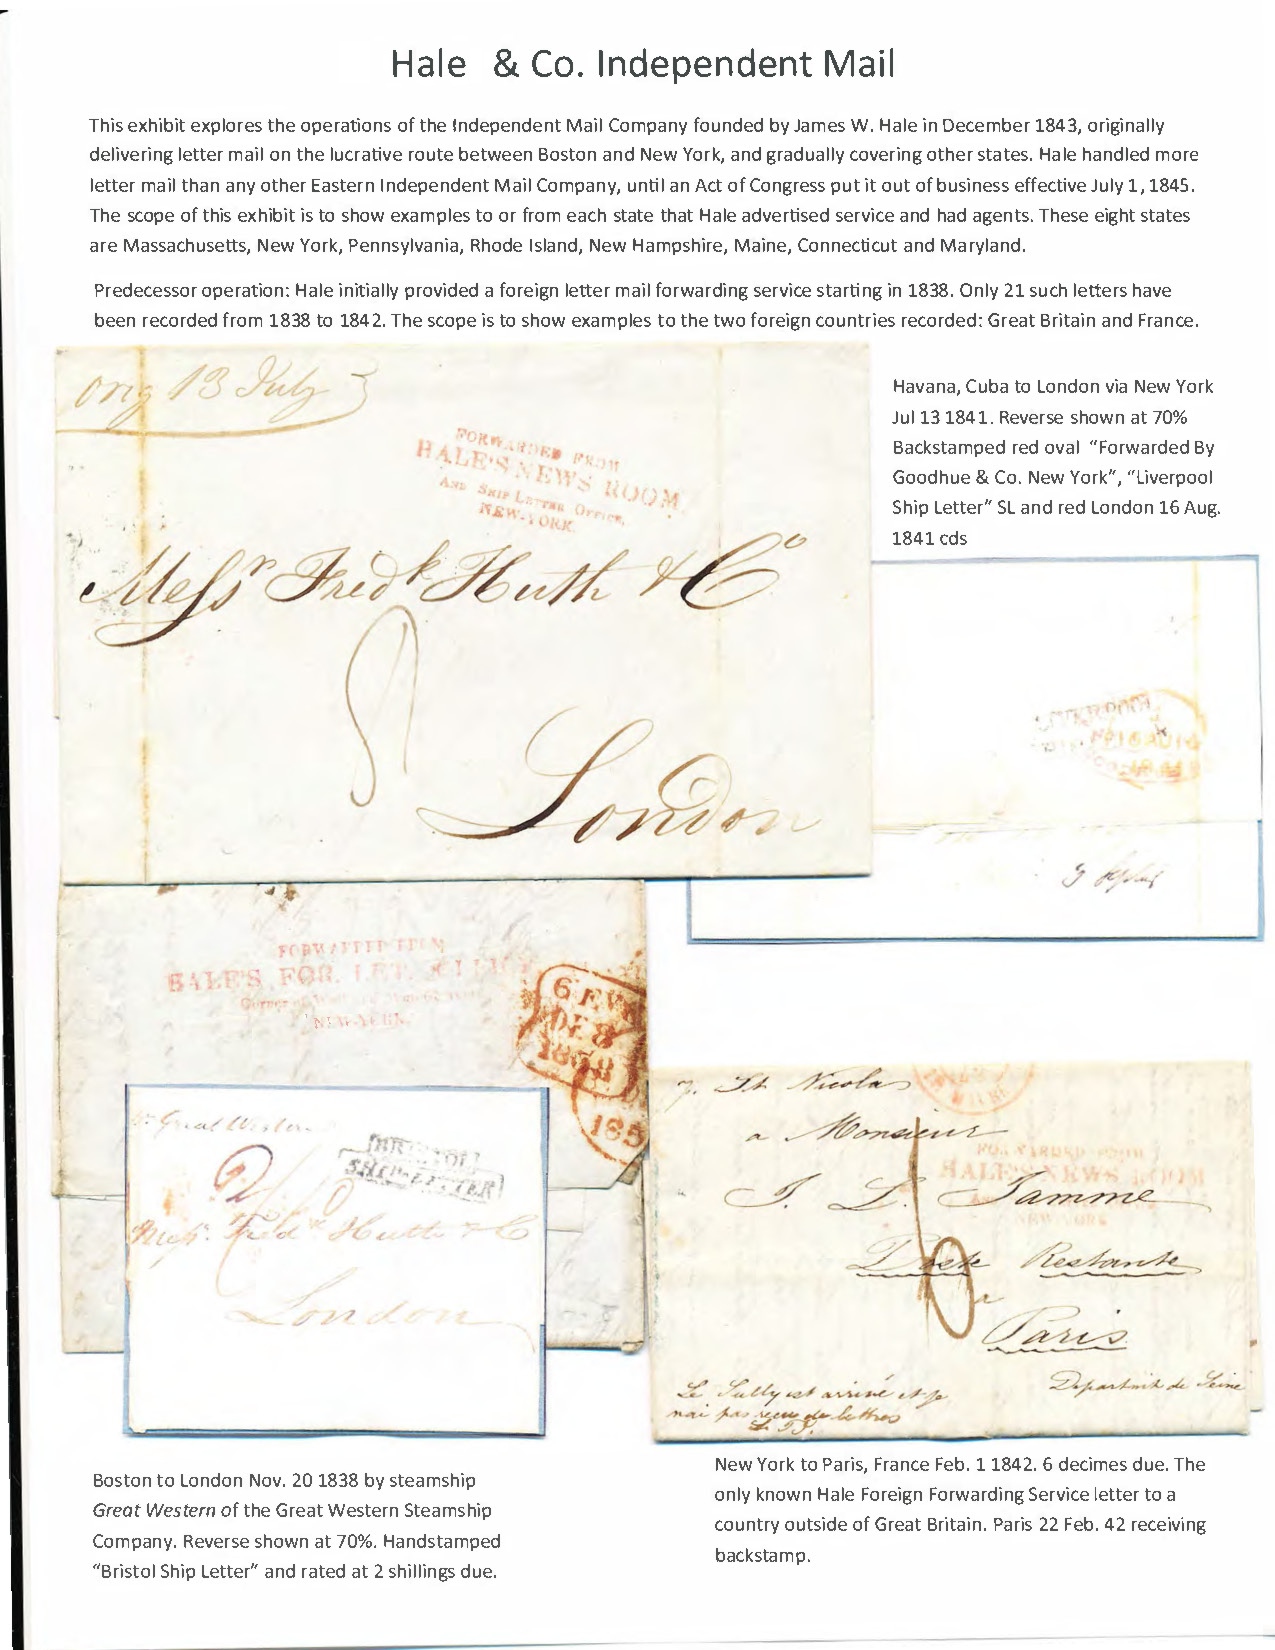 Hale & Co. Independent Mail
This exhibit explores the operations of the Independent Mail Company founded by James W. Hale in December 1843, originally
delivering letter mail on the lucrative route between Boston and New York, and gradually covering other states. Hale handled more
letter mail than any other Eastern Independent Mail Company, until an Act of Congress put it out of business effective July 1, 1845.
The scope of this exhibit is to show examples to or from each state that Hale advertised service and had agents. These eight states
are Massachusetts, New York, Pennsylvania, Rhode Island, New Hampshire, Maine, Connecticut and Maryland.
Predecessor operation: Hale initially provided a foreign letter mail forwarding service starting in 1838. Only 21 such letters have
been recorded from 1838 to 1842. The scope is to show examples to the two foreign countries recorded: Great Britain and France.
Orig 13 July
FORWARDED FROM
HALE'S NEWS ROOM,
AND SHIP LETTER OFFICE,
NEW-YORK.
Messrs Fredk Huth & Co
London
Havana, Cuba to London via New York
Jul 13 1841. Reverse shown at 70%
Backstamped red oval "Forwarded By
Goodhue & Co. New York", "Liverpool
Ship Letter" SL and red London 16 Aug.
1841 cds
LIVERPOOL
FORWARDED FROM
HALE'S FOR. LET.
NEW-YORK.
6 EV
DE 8
1838
Great Western
BRISTOL
SHIP LETTER
2/
Messr. Fredk Huth & Co
London
St Nicolas
a Monsieur
FORWARDED FROM
HALE'S NEWS ROOM
NEW-YORK
J. L. Tamme
Poste Restante
a
Paris
Departmt de Seine
Le Sully est arrivé et je
n'ai pas reçu de lettres
6
Boston to London Nov. 20 1838 by steamship
Great Western of the Great Western Steamship
Company. Reverse shown at 70%. Handstamped
"Bristol Ship Letter" and rated at 2 shillings due.
New York to Paris, France Feb. 1 1842. 6 decimes due. The
only known Hale Foreign Forwarding Service letter to a
country outside of Great Britain. Paris 22 Feb. 42 receiving
backstamp.